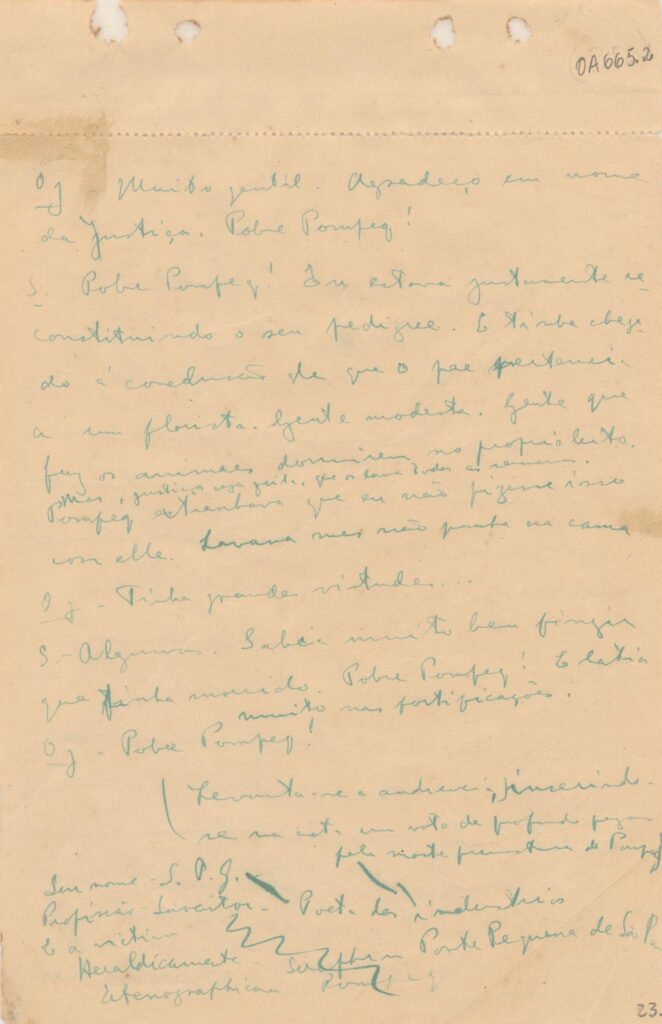 OA665.2
O J - Muito gentil. Agradeço em nome
da Justiça. Pobre Pompeq!
S. - Pobre Pompeq! Eu estava justamente re-
constituindo o seu pedigree. E tinha chega-
do á conclusão de que o pae pertenci-
a um florista. Gente modesta. Gente que
faz os animaes dormirem no proprio leito.
Mas, justiça seja feita, que os lava todas as semanas.
Pompeq extranhava que eu não fizesse isso
com elle. Lavava mas não punha na cama
O J - Tinha grandes virtudes...
S. - Algumas. Sabia muito bem fingir
que tinha morrido. Pobre Pompeq! E latia
muito nas fortificações.
O J - Pobre Pompeq!
(Levanta-se a audiencia, inserindo-
se na acta um voto de profundo pezar
pela morte prematura de Pompeq
Seu nome - S. P. G.
Profissão - Inventor - Poeta das industrias
E a victima
Heraldicamente - Seraphim Ponte Pequena de São Pa
Pompeq
23.